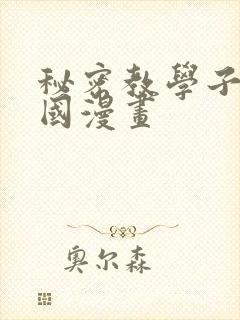 秘密教學子
國漫畫
奧尔森